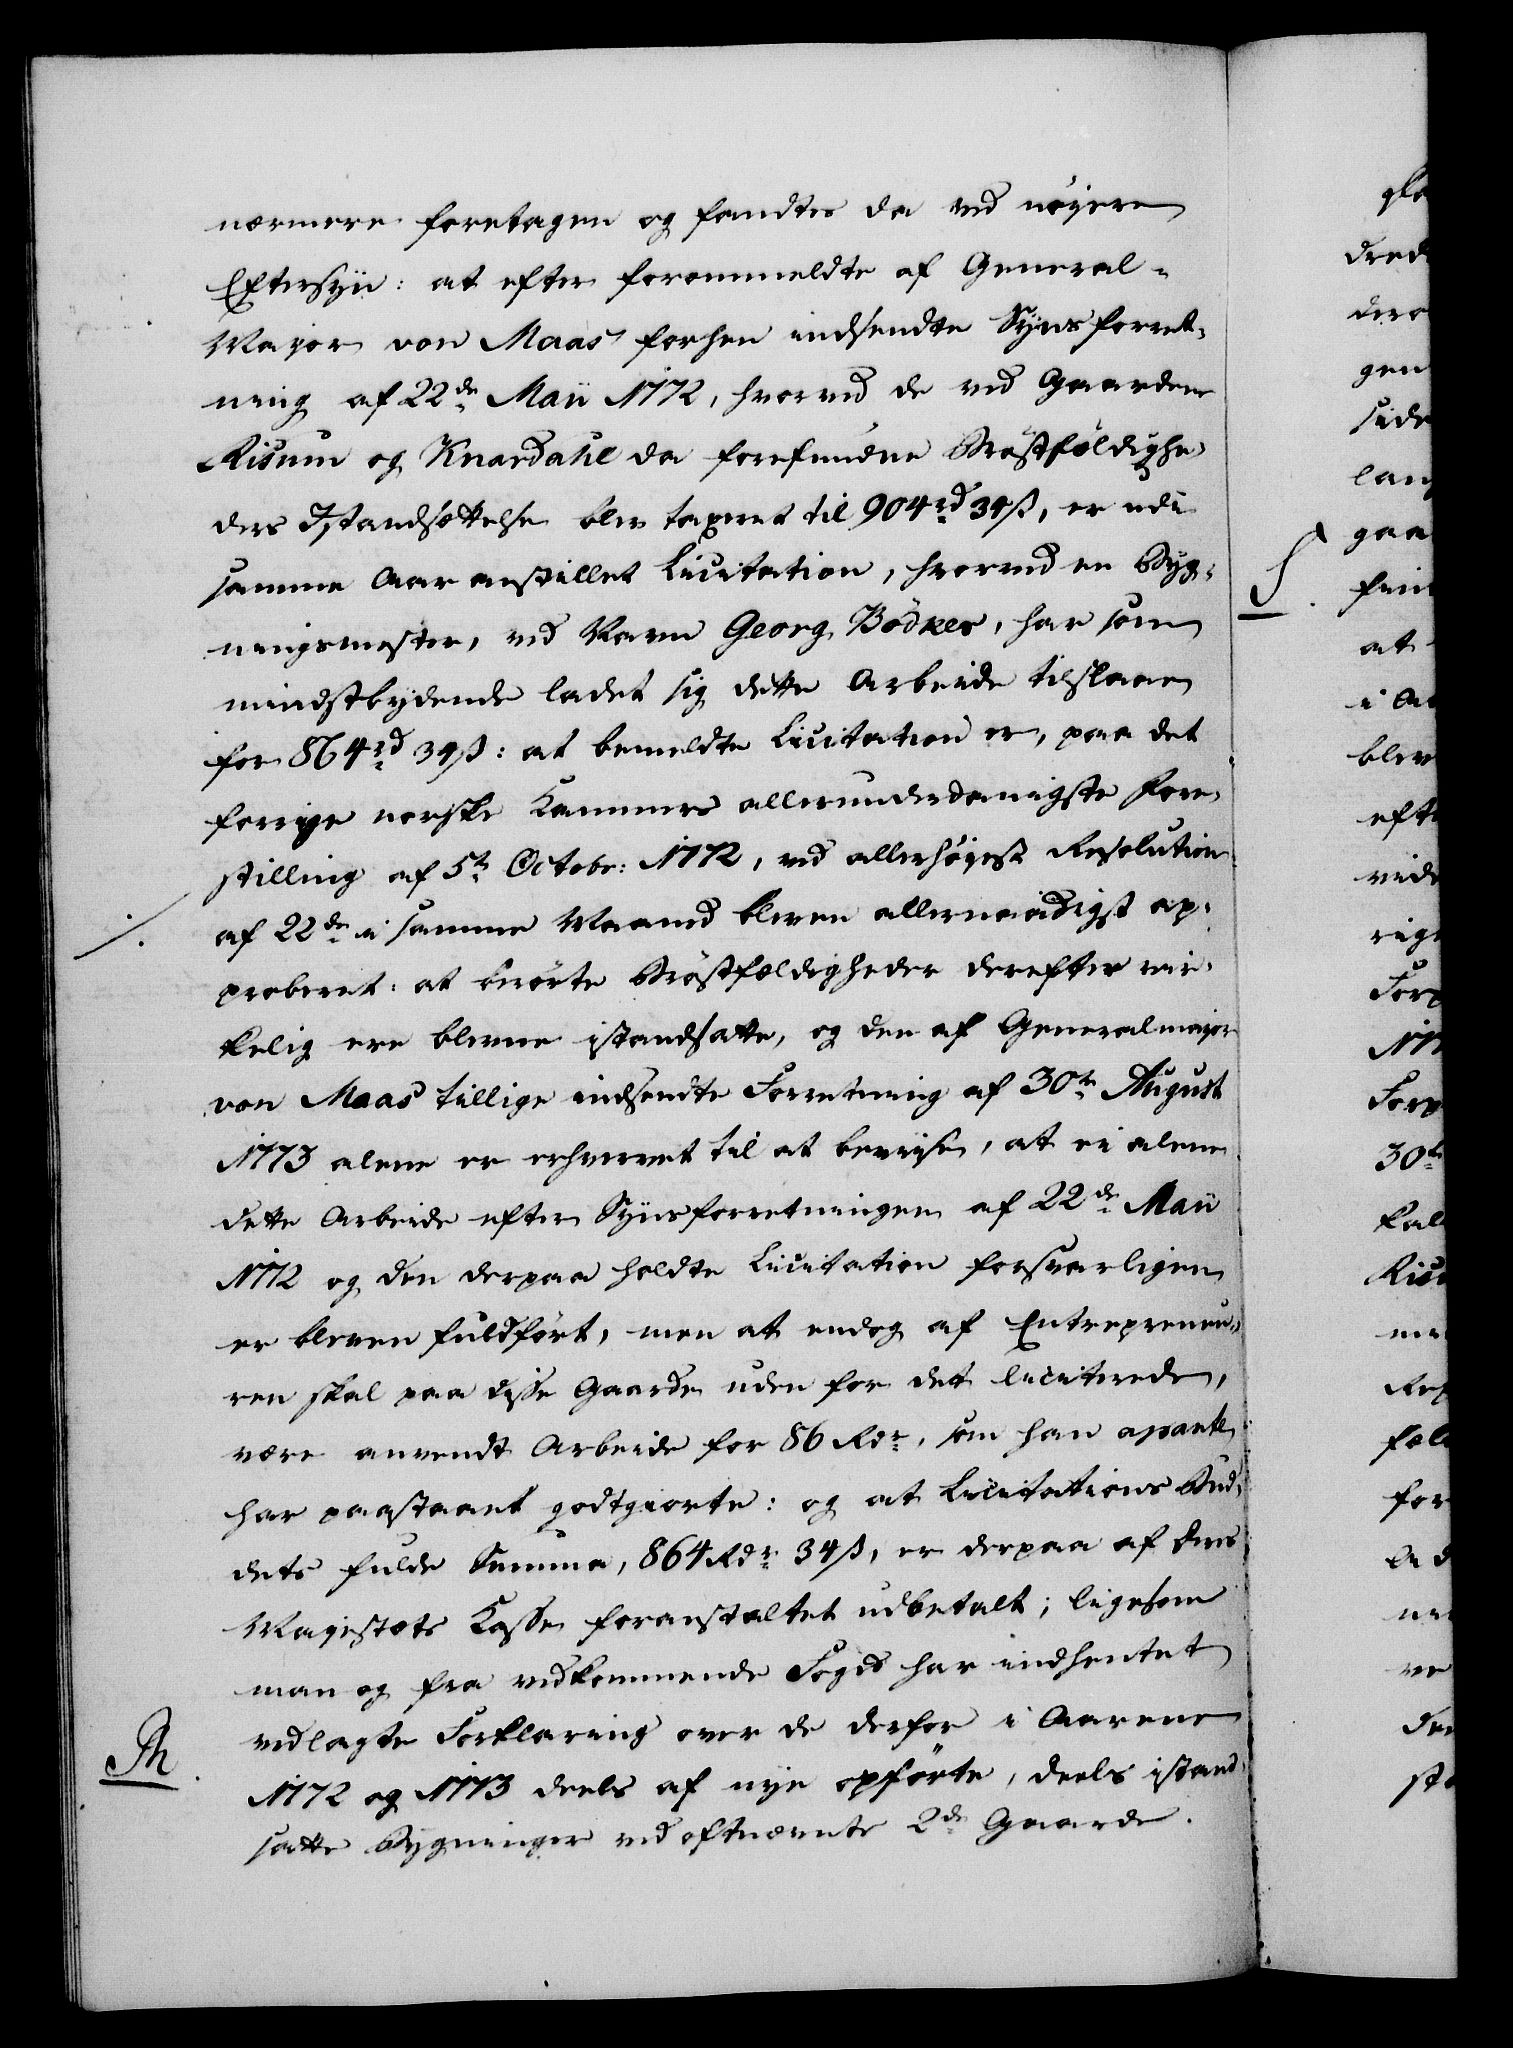 nærmere foretagen og fandtes da ved nøyere
Eftersyn: at efter forommeldte af General-
Major von Maas forhen indsendte Synsforret-
ning af 22de Maii 1772, hvorved de ved Gaardene
Risum og Knardahl da forefundne Brøstfældighe-
ders Istandsættelse blev taxeret til 904rd 34ß, er udi
samme Aar anstillet Licitation, hvorved en Byg-
ningsmester, ved Navn Georg Bödker, har som
mindstbydende ladet sig dette Arbeide tilslaae
for 864rd 34ß: at bemeldte Licitation er, paa det
forrige norske Kammers allerunderdanigste Fore-
stilling af 5te Octobr: 1772, ved allerhøyeste Resolution
af 22de i samme Maaned bleven allernaadigst ap-
proberet: at berørte Brøstfældigheder derefter vir-
kelig ere blevne istandsatte, og den af Generalmajor
von Maas tillige indsendte Forretning af 30te August
1773 alene er erhvervet til at beviise, at ei alene
dette Arbeide efter Synsforretningen af 22de Maii
1772 og den derpaa holdte Licitation forsvarligen
er bleven fuldført, men at endog af Entrepreneu-
ren skal paa disse Gaarde uden for det liciterede,
være anvendt Arbeide for 86 Rdr, som han aparte
har paastaaet godtgiorte: og at Licitations Bud-
dets fulde Summa, 864 Rdr 34ß, er derpaa af Deres
Majestæts Kasse foranstaltet udbetalt; ligesom
man og fra vedkommende Foged har indhentet
vedlagte Forklaring over de derfor i Aarene
1772 og 1773 deels af nye opførte, deels istand-
satte Bygninger ved oftnævnte 2de Gaarde.